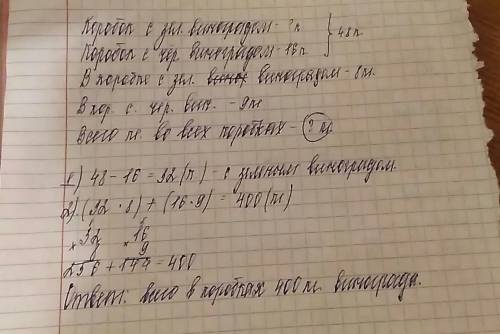 Коробок с зел. виноградом - ? к } 48 к
Коробок с чер. виноградом - 16 к
В коробке с зел. виноградом - 8 кг.
В кор. с. чер. вин. - 9 кг
Всего кг. во всех коробках - ? кг.
1) 48 - 16 = 32 (к) - с зеленым виноградом.
2) (32 · 8) + (16 · 9) = 400 (кг)
× 32 × 16
8 9
256 + 144 = 400
Ответ: всего в коробках 400 кг. винограда.